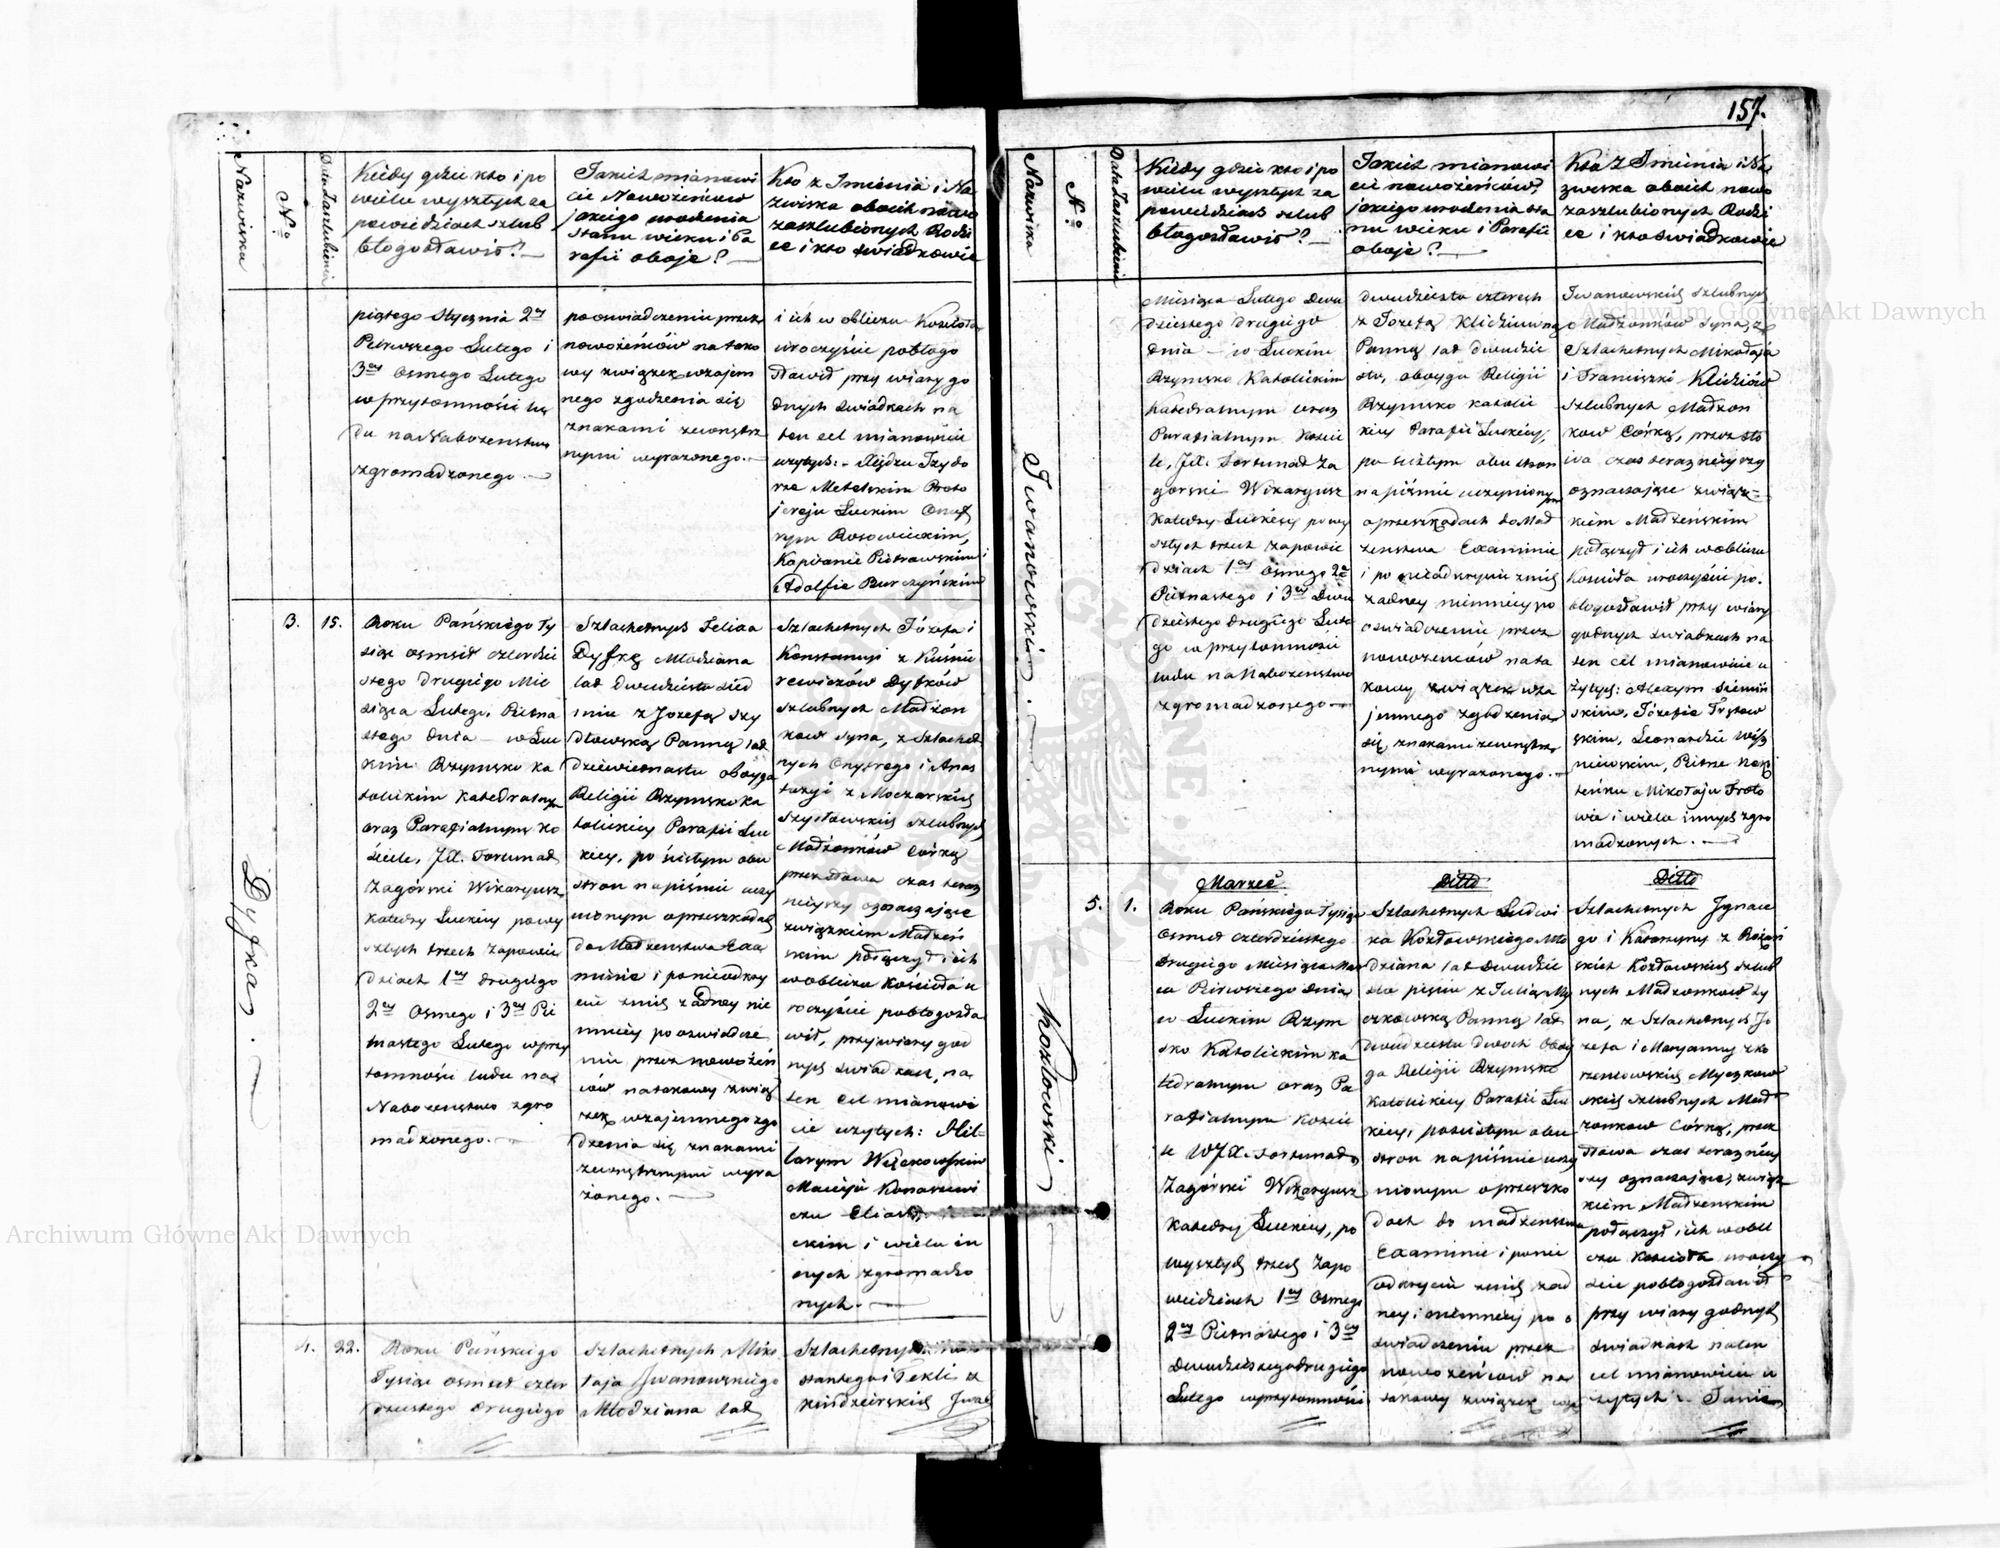 157.
Nazwiska
N<sup>o</sup>
Data Zaslubienia
Kiedy gdzie kto i po
wielu wyszłych za
powiedziach szlub
błogosławił? —
Jakich mianowi
cie Nowożeńców
jakiego urodzenia
stanu wieku i Pa
rafii oboje? —
Kto z Imienia i Na
zwiska oboich nowo
zaszlubionych Rodzi
ce i kto swiadkowie
piątego stycznia 2gi
Pierwszego Lutego i
3ci Osmego Lutego
w przytomności lu
du na Nabozenstwo
zgromadzonego. —
po oswiadczeniu przez
nowożeńców na tako
wy związek wzajem
nego zgodzenia się
znakami zewnętrz
nymi wyrazonego. —
i ich w obliczu Kosciola
uroczyście pobłogo
sławił przy wiary go
dnych swiadkach na
ten cel mianowicie
uzytych: Xiędzu Izydo
rze Metelskim Proto
jereju Łuckim Onuf
rym Rosowieckim,
Kapitanie Piotrowskim i
Adolfie Burczyńskim
Dyfka. —
3. 15.
Roku Pańskiego Ty
siąc osmset czterdzie
stego drugiego Mie
siąca Lutego, Pietna
stego dnia — w Łuc
kim Rzymsko ka
tolickim Katedralnym
oraz Parafialnym Ko
sciele, JX. Fortunat
Zagórski Wikaryusz
Katedry Łuckiey po wy
szłych trzech zapowie
dziach 1ey drugiego
2ey Osmego i 3ey Pie
tnastego Lutego w przy
tomności ludu na
Nabozenstwo zgro
madzonego. —
Szlachetnych Felixa
Dyfkę Młodziana
lat dwudziestu sied
miu z Jozefą Szy
dłowską Panną lat
dziewietnastu oboyga
Religii Rzymsko ka
tolickiey Parafii Łuc
kiey, po ścisłym obu
stron na piśmie uczy
nionym o przeszkodach
do Małzenstwa Exa
minie i po nieodkry
ciu zniej żadney nie
mniey po oswiadcze
niu przez nowożeń
ców na takowy zwią
zek wzajemnego zgo
dzenia się znakami
zewnętrznymi wyra
żonego. —
Szlachetnych Józefa i
Konstancyi z Kuśnie
rewiczów Dyfków
szlubnych Małżon
ków syna, z Szlachet
nych Onufrego i Anas
tazyi z Moczarskich
Szydłowskich szlubnych
Małżonków Córką
przez słowa czas teraz
nieyszy oznaczające
związkiem Małżeń
skim połączył i ich
w obliczu Kościoła u
roczyście pobłogosła
wił, przy wiary god
nych swiadkach, na
ten cel mianowi
cie uzytych: Hil-
larym Więckowskim
Macieju Konasiewi
czu
i wielu in
nych zgromadzo
nych. —
4. 22.
Roku Pańskiego
Tysiąc osmset czter
dziestego drugiego
Szlachetnych Miko
łaja Jwanowskiego
Młodziana lat
Szlachetnych
i Tekli z
Jwa
Nazwiska
N<sup>o</sup>
Data Zaslubienia
Kiedy gdzie kto i po
wielu wyszłych za
powiedziach szlub
błogosławił? —
Jakich mianowi
cie nowożeńców,
jakiego urodzenia sta
nu wieku i Parafii
oboje? —
Kto z Imienia i Na
zwiska oboich nowo
zaszlubionych Rodzi
ce i kto Swiadkowie
Jwanowski. —
Miesiąca Lutego dwu
dziestego drugiego
dnia — w Łuckim
Rzymsko Katolickim
Katedralnym oraz
Parafialnym Koście
le, JX. Fortunat Za
gorski Wikaryusz
Katedry Łuckiey po wy
szłych trzech zapowie
dziach 1ey Osmego 2ey
Pietnastego i 3ey Dwu
dziestego drugiego Lute
go w przytomności
ludu na Nabozenstwo
zgromadzonego —
dwudziestu czterech
z Jozefą Klidziowną
Panną lat dwudzie
stu, oboyga Religii
Rzymsko katolic
kiey Parafii Łuckiey,
po scisłym obu stron
na piśmie uczynionym
o przeszkodach do Mał
zenstwa Examinie
i po nieodkryciu zniej
zadney niemniey po
oswiadczeniu przez
nowozenców na ta
kowy związek wza
jemnego zgodzenia
się, znakami zewnętrz
nymi wyrazonego. —
Jwanowskich szlubnych
Małżonków Syna, z
Szlachetnych Mikołaja
i Franciszki Klidziów
szlubnych Małżon
kow Córką, przez sło
wa czas teraznieyszy
oznaczające związ-
kiem Małżeńskim
połączył i ich w obliczu
Kościoła uroczyście po-
błogosławił przy wiary
godnych swiadkach na
ten cel mianowicie u
żytych: Alexym Siemiń
skim, Józefie
Leonardzie Wiś
niewskim, Piotrze
Mikołaju Froło
wie i wielu innych zgro
madzonych. —
Kozłowski
Marzec
Ditto
Ditto
5. 1.
Roku Pańskiego Tysiąc
Osmset czterdziestego
drugiego Miesiąca Mar
ca Pierwszego dnia
w Łuckim Rzym
sko Katolickim ka
tedralnym oraz Pa
rafialnym Koście
le WJX. Fortunat
Zagórski Wikaryusz
Katedry Łuckiey, po
wyszłych trzech zapo
wiedziach 1ey Osmego
2ey Pietnastego i 3ey
Dwudziestego drugiego
Lutego w przytomności
Szlachetnych Ludwi
ka Kozłowskiego Mło
dziana lat dwudzie
stu pięciu z Julią My
czkowską Panną lat
dwudziestu dwoch oboy
ga Religii Rzymsko
Katolickiey Parafii Łuc
kiey, po scisłym obu
stron na piśmie uczy
nionym o przeszko
dach do małżenstwa
Examinie i po nie
odkryciu zniej żad
ney i niemniey po o
świadczeniu przez
nowożeńców na
takowy związek wza
Szlachetnych Jgnace
go i Katarzyny z
Kozłowskich szlub
nych Małzonkow Sy
na, z Szlachetnych Jo
zefa i Maryanny z Ko
rzeniowskich Myczkow
skich szlubnych Mał
zonkow Córką, przez
słowa czas teraźniey
szy oznaczające, związ
kiem Małzenskim
połączył, i ich w obli
czu Kosciola uroczy
scie pobłogosławił
przy wiary godnych
swiadkach na ten
cel mianowicie u
żytych:
Archiwum Główne Akt Dawnych
Archiwum Główne Akt Dawnych